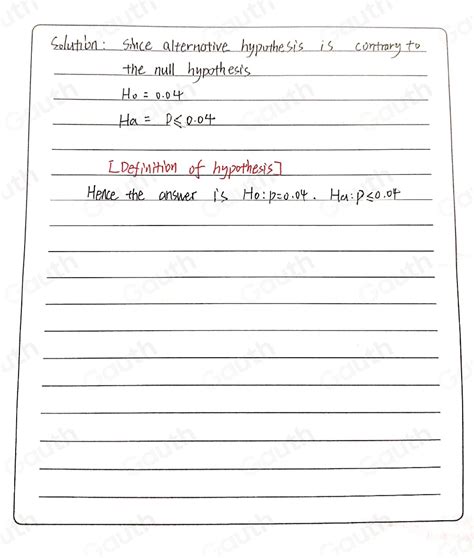 Solution: Since alternative hypothesis is contrary to
the null hypothesis
H₀ = 0.04
Ha = P⩽0.04
[Definition of hypothesis]
Hence the answer is H₀: p=0.04. Ha: P⩽0.04